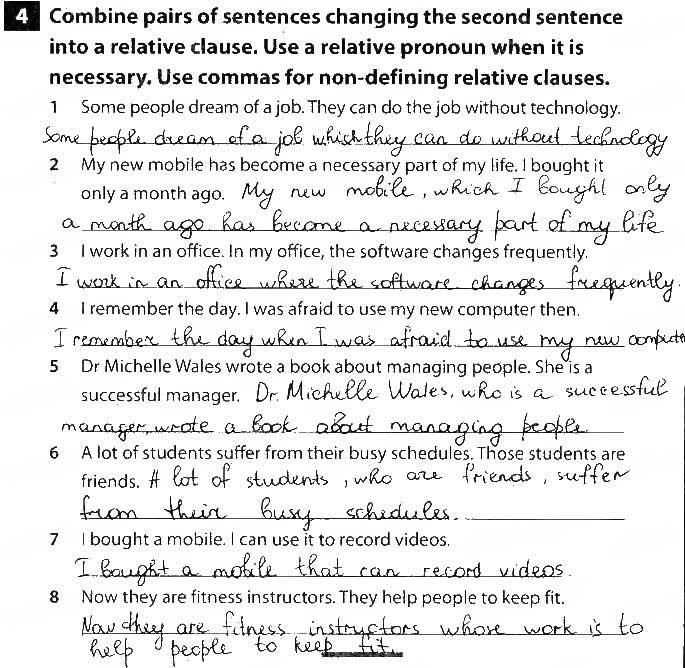 4 Combine pairs of sentences changing the second sentence
into a relative clause. Use a relative pronoun when it is
necessary. Use commas for non-defining relative clauses.
1 Some people dream of a job. They can do the job without technology.
Some people dream of a job which they can do without technology
2 My new mobile has become a necessary part of my life. I bought it
only a month ago. My new mobile, which I bought only
a month ago has become a necessary part of my life
3 I work in an office. In my office, the software changes frequently.
I work in an office where the software changes frequently.
4 I remember the day. I was afraid to use my new computer then.
I remember the day when I was afraid to use my new computer
5 Dr Michelle Wales wrote a book about managing people. She is a
successful manager. Dr. Michelle Wales, who is a successful
manager, wrote a book about managing people
6 A lot of students suffer from their busy schedules. Those students are
friends. A lot of students, who are friends, suffer
from their busy schedules.
7 I bought a mobile. I can use it to record videos.
I bought a mobile that can record videos.
8 Now they are fitness instructors. They help people to keep fit.
Now they are fitness instructors whose work is to
help people to keep fit.